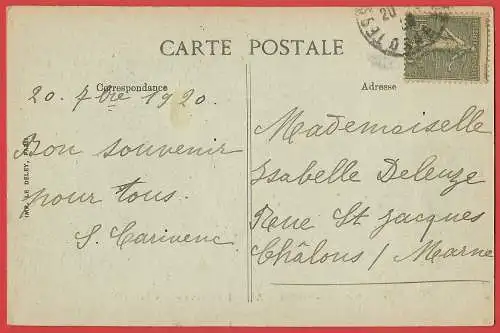 CARTE POSTALE
Correspondance
Adresse
20. 7bre 1920.
Bon souvenir
pour tous.
S. Carivenc
Mademoiselle
Isabelle Deleuze
Rue St Jacques
Châlons / Marne
IMP. LE DELEY, PARIS
20